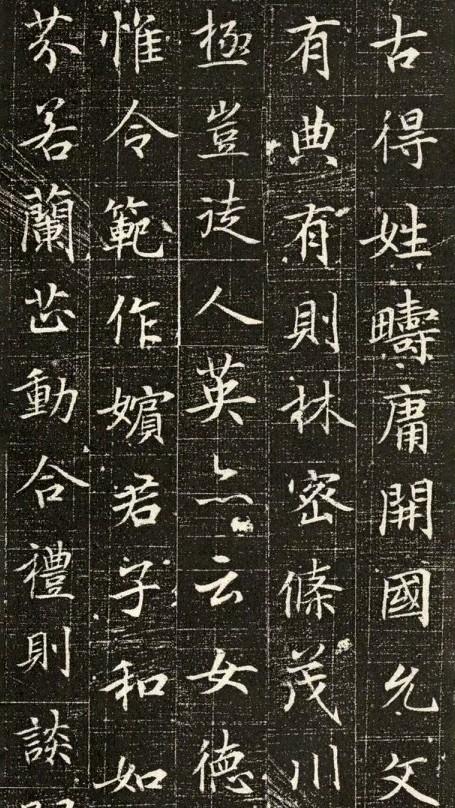 古得姓疇庸開國允文
有典有則林密條茂川
極豈徒人英亦云女德
惟令範作嬪君子和如
芬若蘭芷動合禮則談